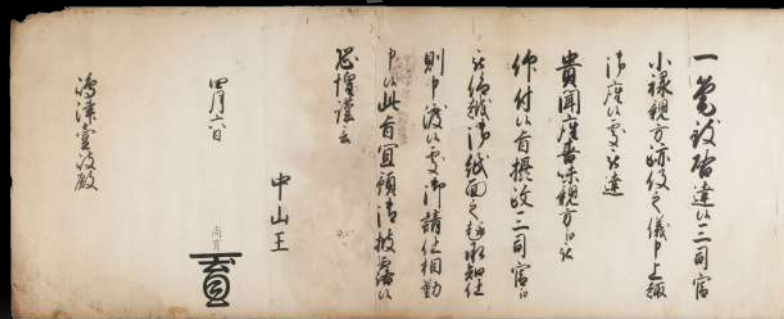 一筆致啓達候三司官
小禄親方跡役之儀申上趣
御座候處被達
貴聞座喜味親方江被
仰付候旨摂政三司官江
被仰越御紙面之趣承知仕
則申渡候處御請仕相勤
申候此旨宜頼御披露候
恐惶謹言
中山王
尚育
四月六日
島津壱岐殿